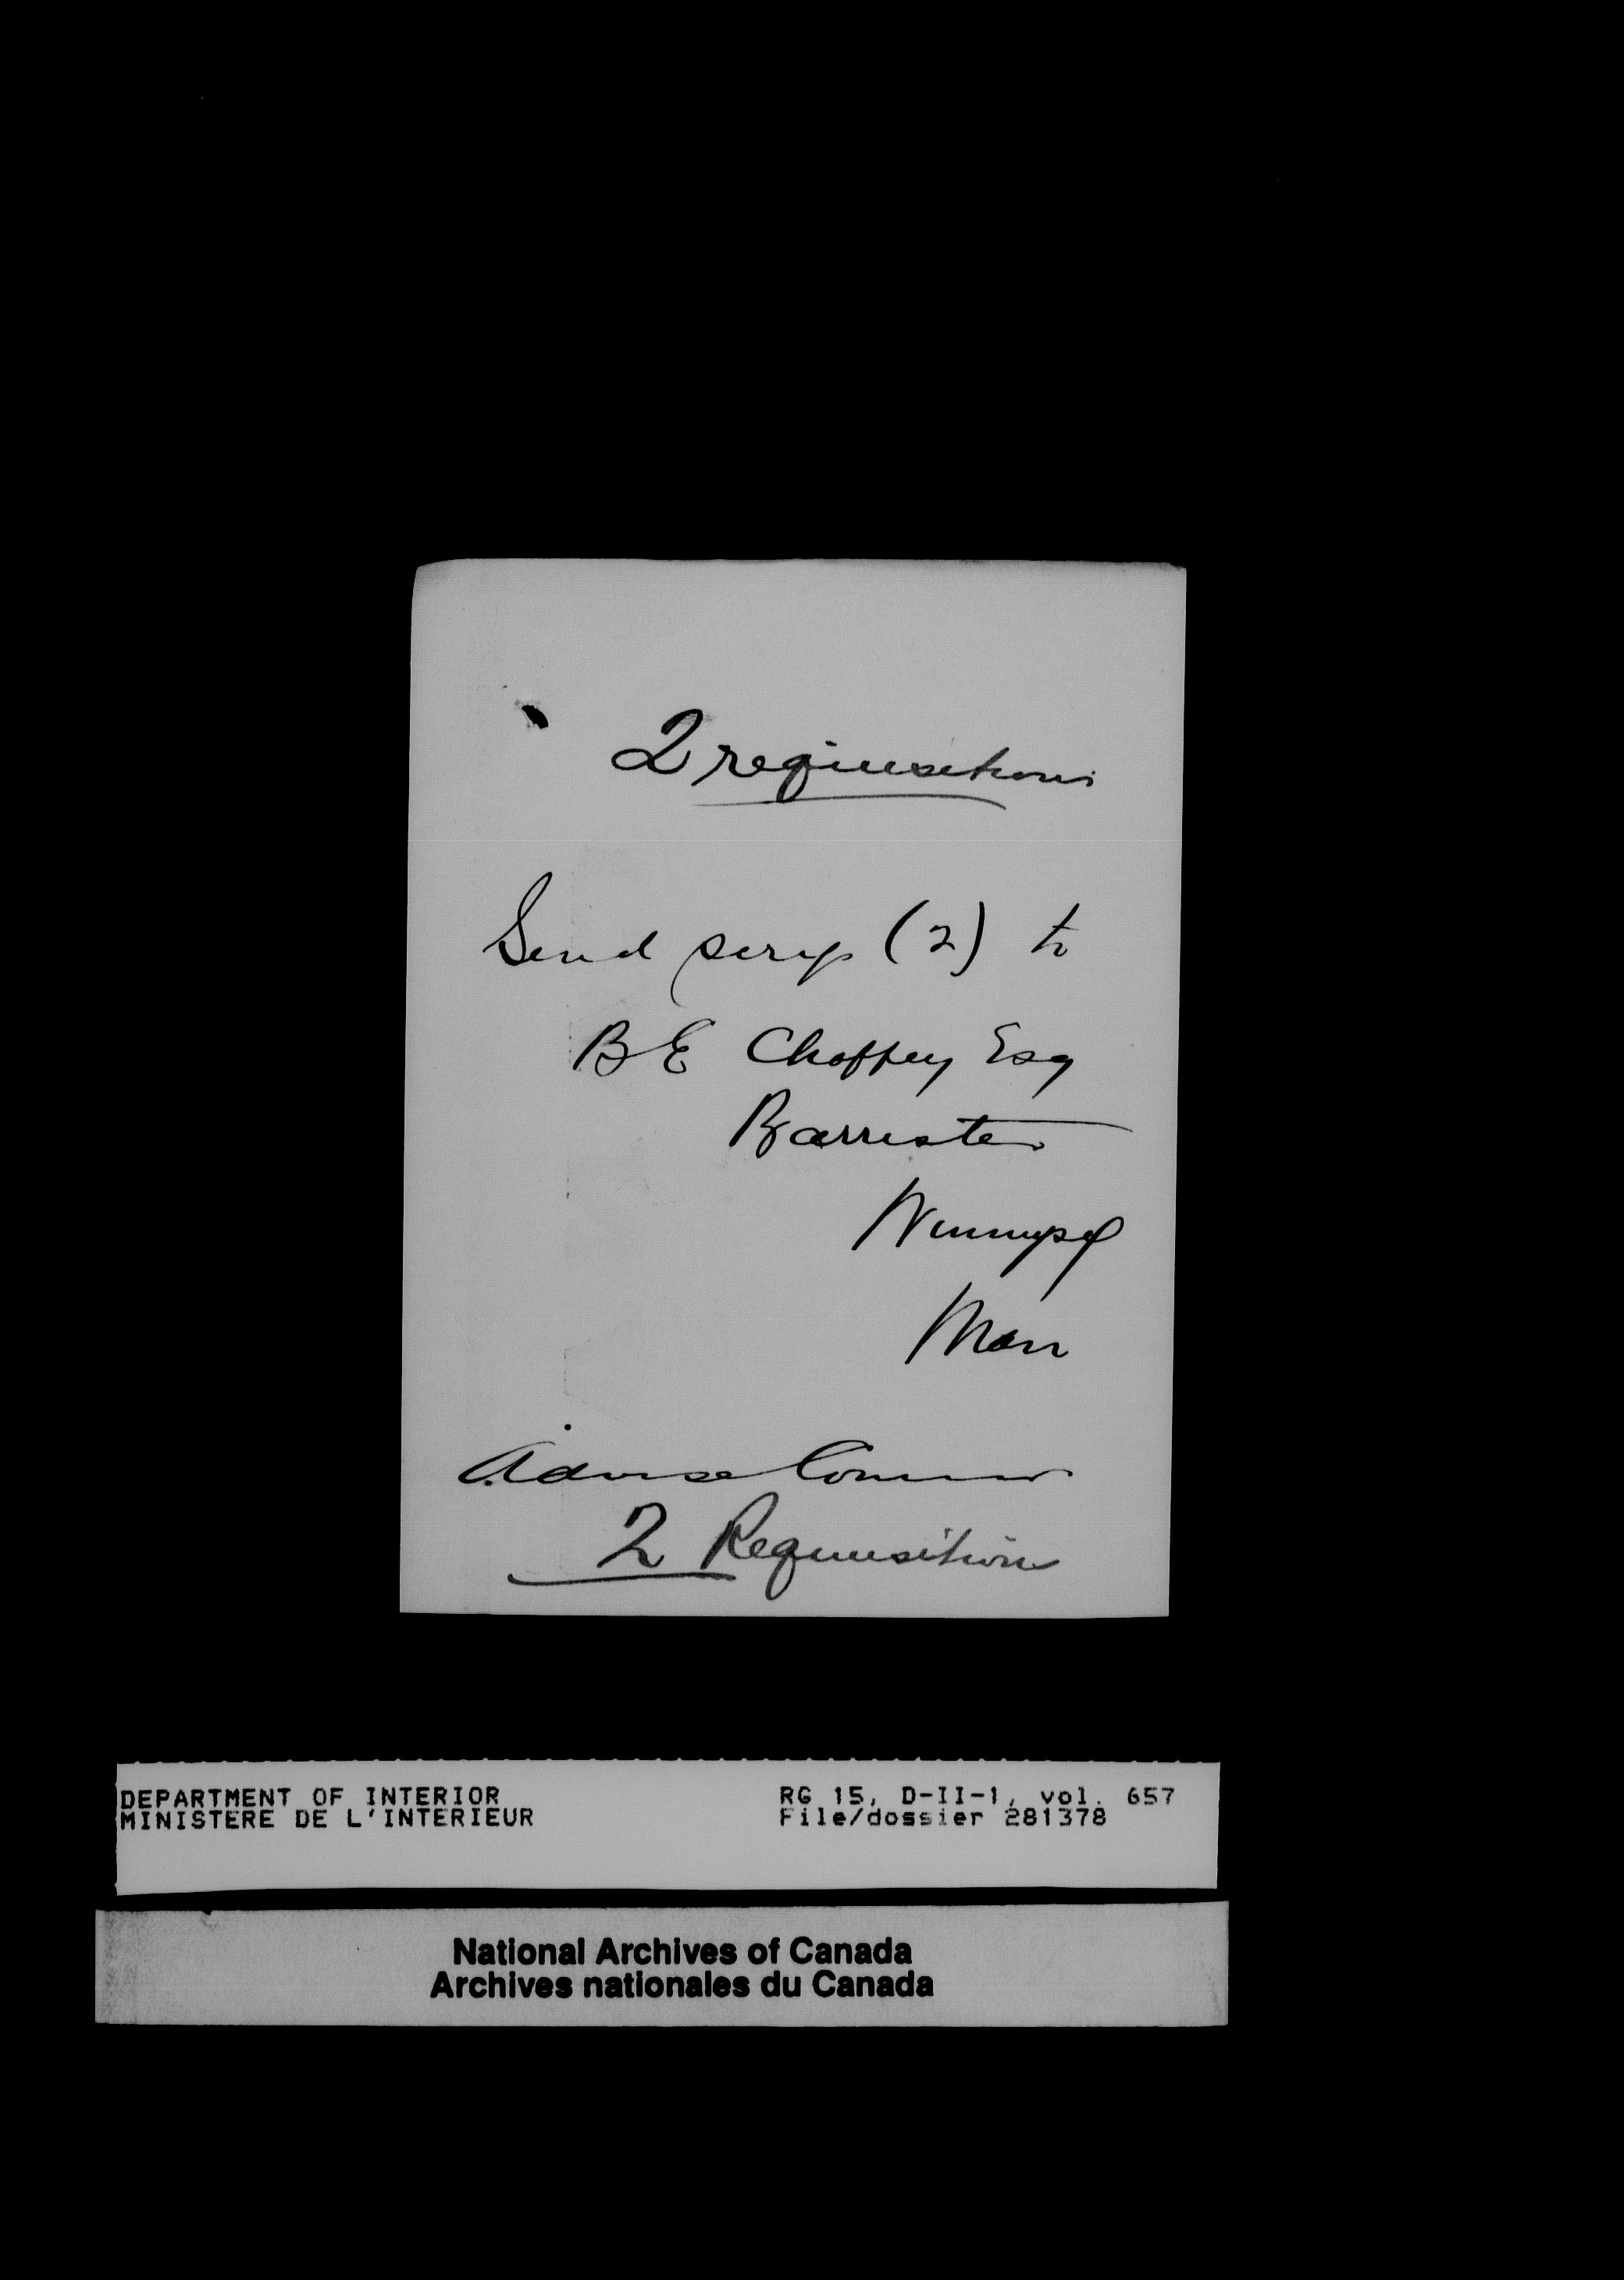 2 requisitions
Send scrip (2) to
B E Chaffey Esq
Barrister
Winnipeg
Man
Advise Commr
2 Requisitions
DEPARTMENT OF INTERIOR RG 15, D-II-1, vol. 657
MINISTERE DE L'INTERIEUR File/dossier 281378
National Archives of Canada
Archives nationales du Canada